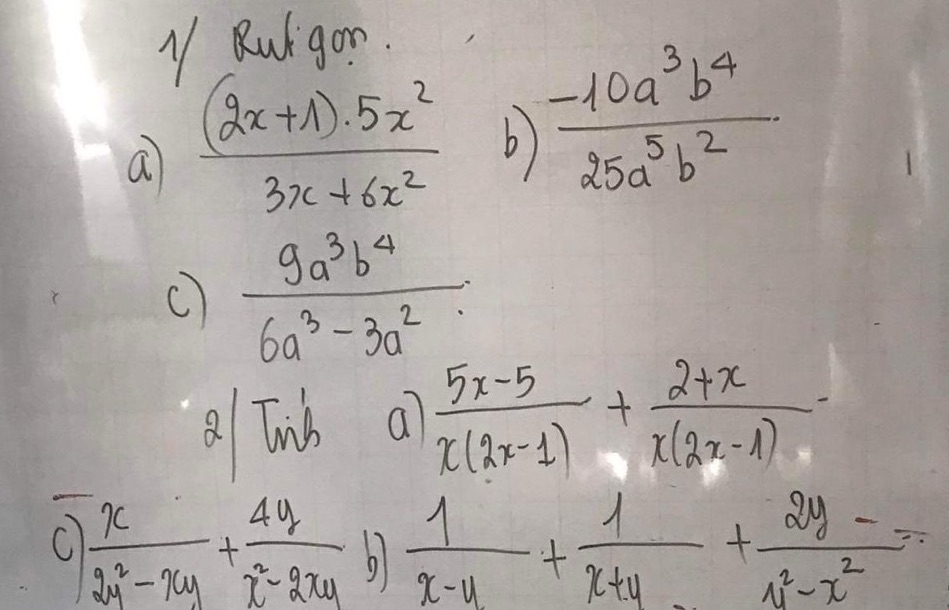 1/ Rút gọn.
a) \frac{(2x+1).5x^2}{3x+6x^2} b) \frac{-10a^3b^4}{25a^5b^2}
c) \frac{9a^3b^4}{6a^3-3a^2}:
2/ Tính a) \frac{5x-5}{x(2x-1)} + \frac{2+x}{x(2x-1)}
c) \frac{x}{2y^2-xy} + \frac{4y}{x^2-2xy} b) \frac{1}{x-y} + \frac{1}{x+y} + \frac{2y}{y^2-x^2} =